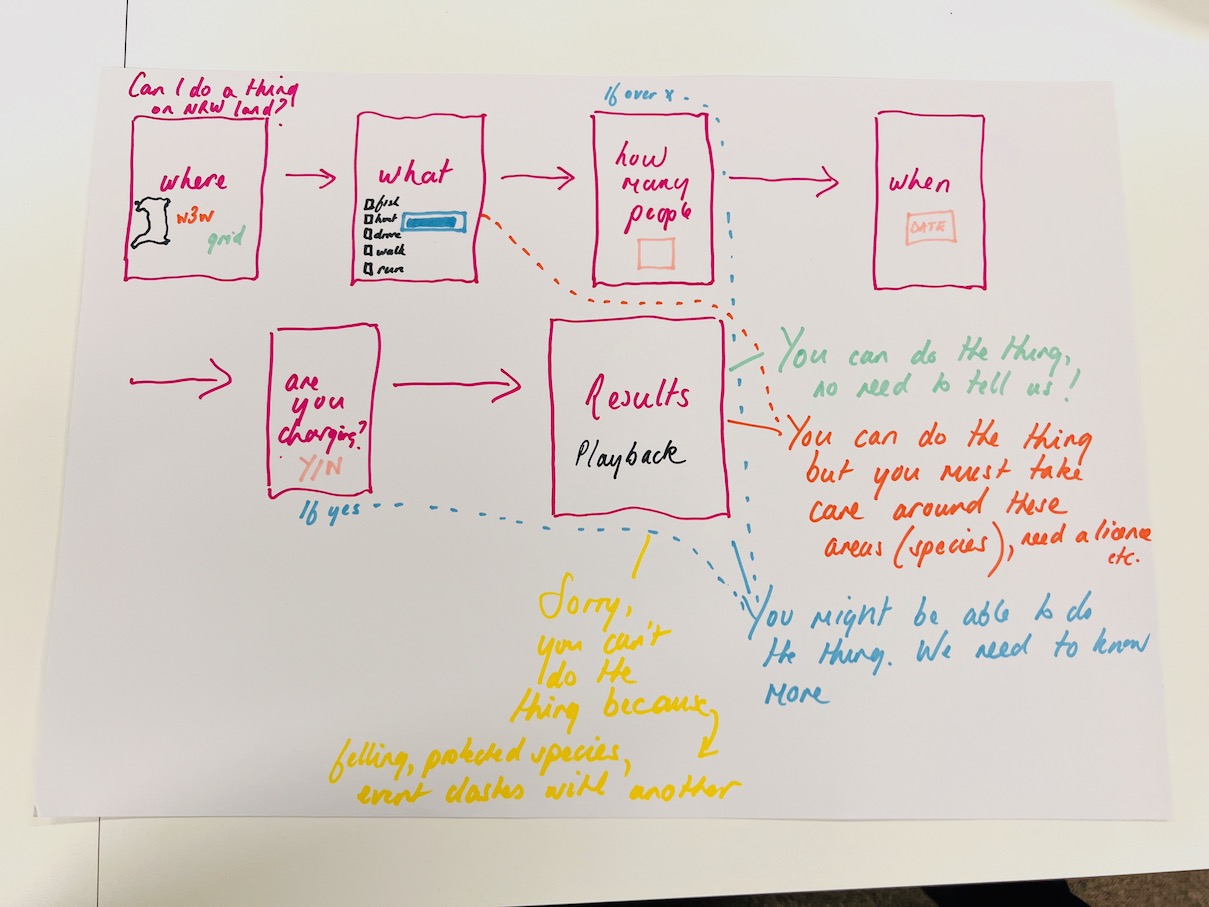 Can I do a thing
on NRW land?
where
w3w
grid
what
fish
hunt
drone
walk
run
If over x
how
many
people
when
DATE
are
you
charging?
Y/N
If yes
Results
Playback
You can do the thing,
no need to tell us!
You can do the thing
but you must take
care around these
areas (species), need a licence
etc.
You might be able to do
the thing. We need to know
more
Sorry,
you can't
do the
thing because
felling, protected species,
event clashes with another